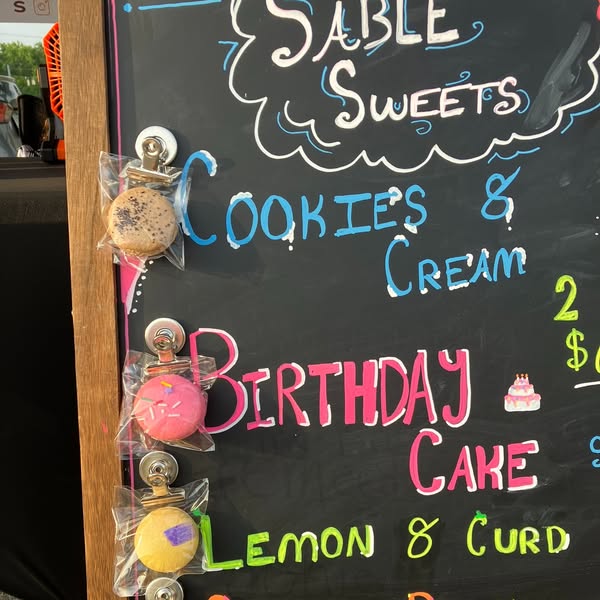 S
SABLE
SWEETS
COOKIES &
CREAM
2
$
BIRTHDAY
CAKE
LEMON & CURD